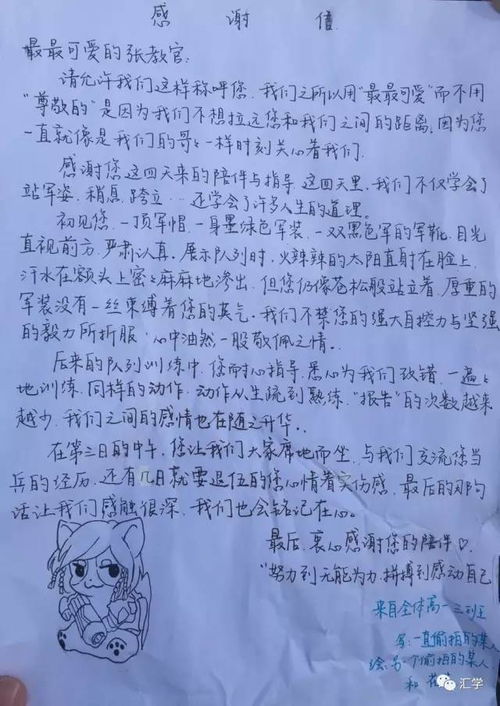 感谢信
最最可爱的张教官:
请允许我们这样称呼您,我们之所以用"最最可爱"而不用
"尊敬的"是因为我们不想拉远您和我们之间的距离,因为您
一直就像是我们的哥々一样时刻关心着我们.
感谢您这四天来的陪伴与指导,这四天里,我们不仅学会了
站军姿,稍息,跨立…还学会了许多人生的道理。
初见您,一顶军帽,一身墨绿色军装,一双黑色军的军靴,目光
直视前方,严肃认真,展示队列时,火辣辣的太阳直射在脸上,
汗水在额头上密々麻麻地渗出,但您仍像苍松般站立着,厚重的
军装没有一丝束缚着您的英气。我们不禁您的强大自控力与坚强
的毅力所折服,心中油然一股敬佩之情。
后来的队列训练中,您耐心指导,悉心为我们改错,一遍々
地训练,同样的动作,动作从生疏到熟练,"报告"的次数越来
越少,我们之间的感情也在随之升华。
在第三日的中午,您让我们大家席地而坐,与我们交流您当
兵的经历,还有几日就要退伍的您心情着实伤感,最后的那句
话让我们感触很深,我们也会铭记在心。
最后,衷心感谢您的陪伴♡.
"努力到无能为力,拼搏到感动自己
来自全体高一三班
写:一直偷拍的某人
绘:另一个偷拍的某人
和
汇学